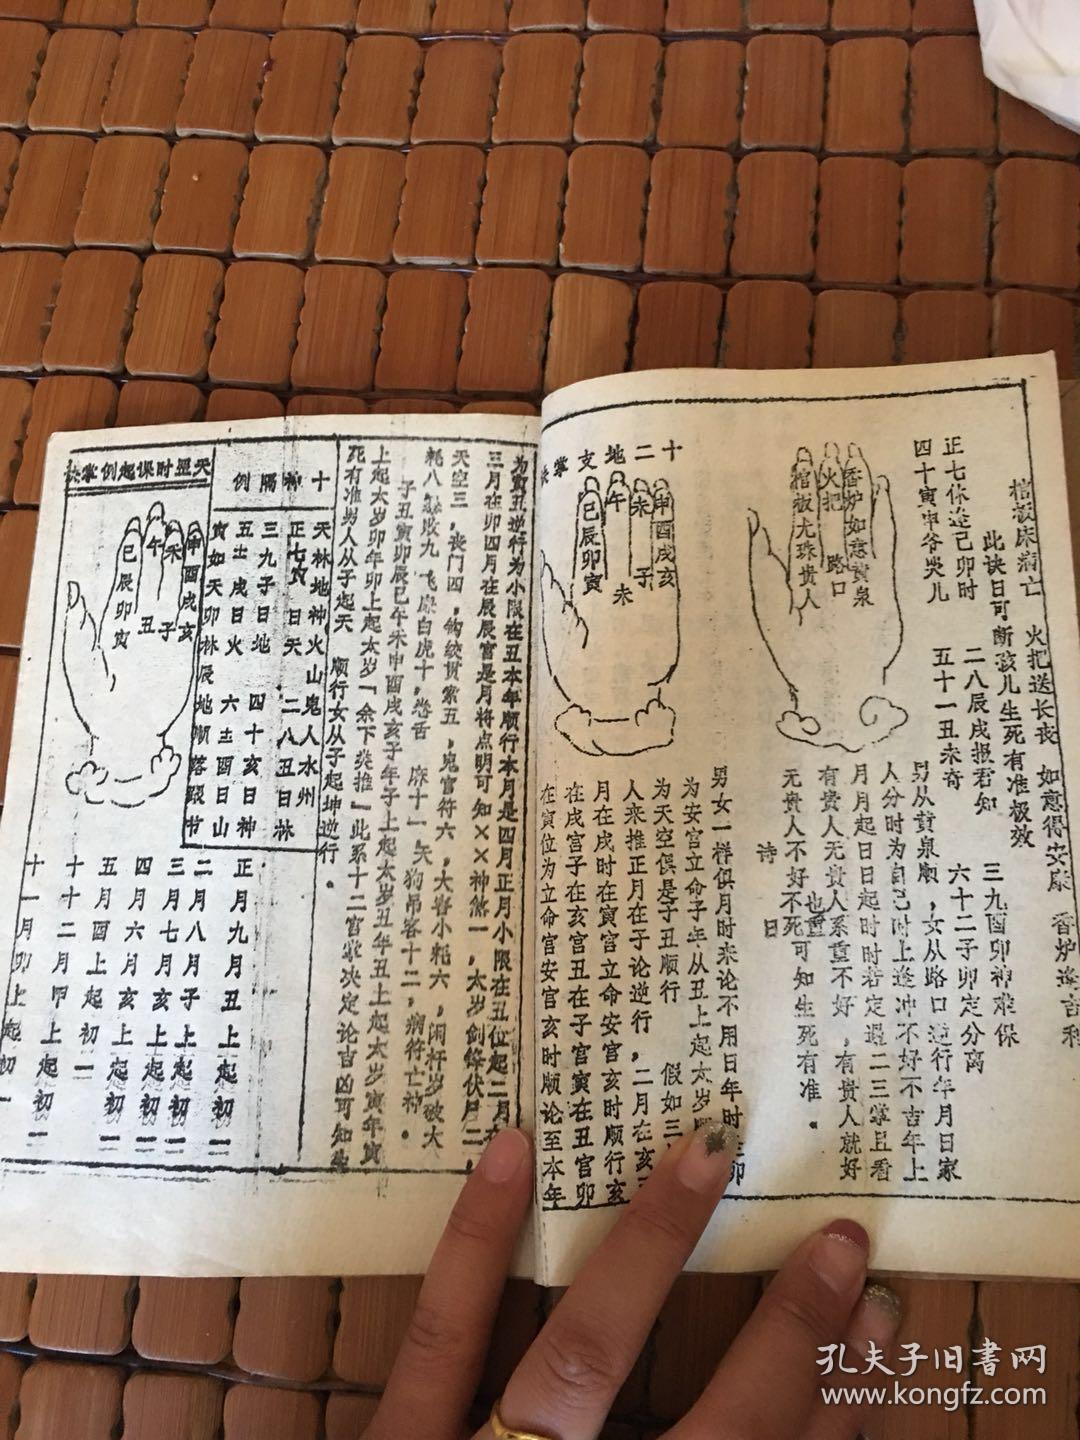 棺板床病亡 火把送长丧 如意得安康 香炉逢吉利
此诀日可断孩儿生死有准极效
正七休逢己卯时 二八辰戌报君知 三九酉卯神难保
四十寅申爷哭儿 五十一丑未奇 六十二子卯定分离
男从黄泉顺,女从路口逆行年月日家
人分时为自己时上逢冲不好不吉年上
月月起日日起时时若定遇二三掌且看
有贵人无贵人系重不好,有贵人就好
也重
无贵人不好不死可知生死有准.
诗 日
香炉如意黄泉
火把 路口
棺板尤珠贵人
十二地支掌
申酉戌亥
未 子
午 未
巳辰卯寅
男女一样俱月时来论不用日年时
为安宫立命子年从丑上起太岁
为天空俱是子丑顺行 假如三
人来推正月在子论逆行,二月在亥
月在戌时在寅宫立命安宫亥时顺行亥
在戌宫子在亥宫丑在子宫寅在丑宫卯
在寅位为立命宫安宫亥时顺论至本年
为寅丑逆行为小限在丑本年顺行本月是四月正月小限在丑位起二月在
三月在卯四月在辰辰宫是月将点明可知××神煞一,太岁剑锋伏尸二,
天空三,丧门四,钩绞贯索五,鬼官符六,大耗小耗六,阑杆岁破大
耗八 败九,飞廉白虎十,卷舌 麻十一,天狗吊客十二,病符亡神.
子丑寅卯辰巳午未申酉戌亥子年子上起太岁丑年丑上起太岁寅年寅
上起太岁卯年卯上起太岁「余下类推」此系十二宫掌决定论吉凶可知生
死有准男人从子起天 顺行女从子起坤逆行.
十种隔例
天林地神火山鬼人水州
正七寅日天 二八丑日林
三九子日地 四十亥日神
五十一戌日火 六十二酉日山
寅如天卯林辰地顺落
天 时课起例掌诀
申酉戌亥
未 子
午 丑
巳辰卯寅
正月九月丑上起初二
二月八月子上起初二
三月七月亥上起初二
四月六月亥上起初二
五月酉上起初一
十十二月甲上起初二
十一月卯上起初一
孔夫子旧书网
www.kongfz.com